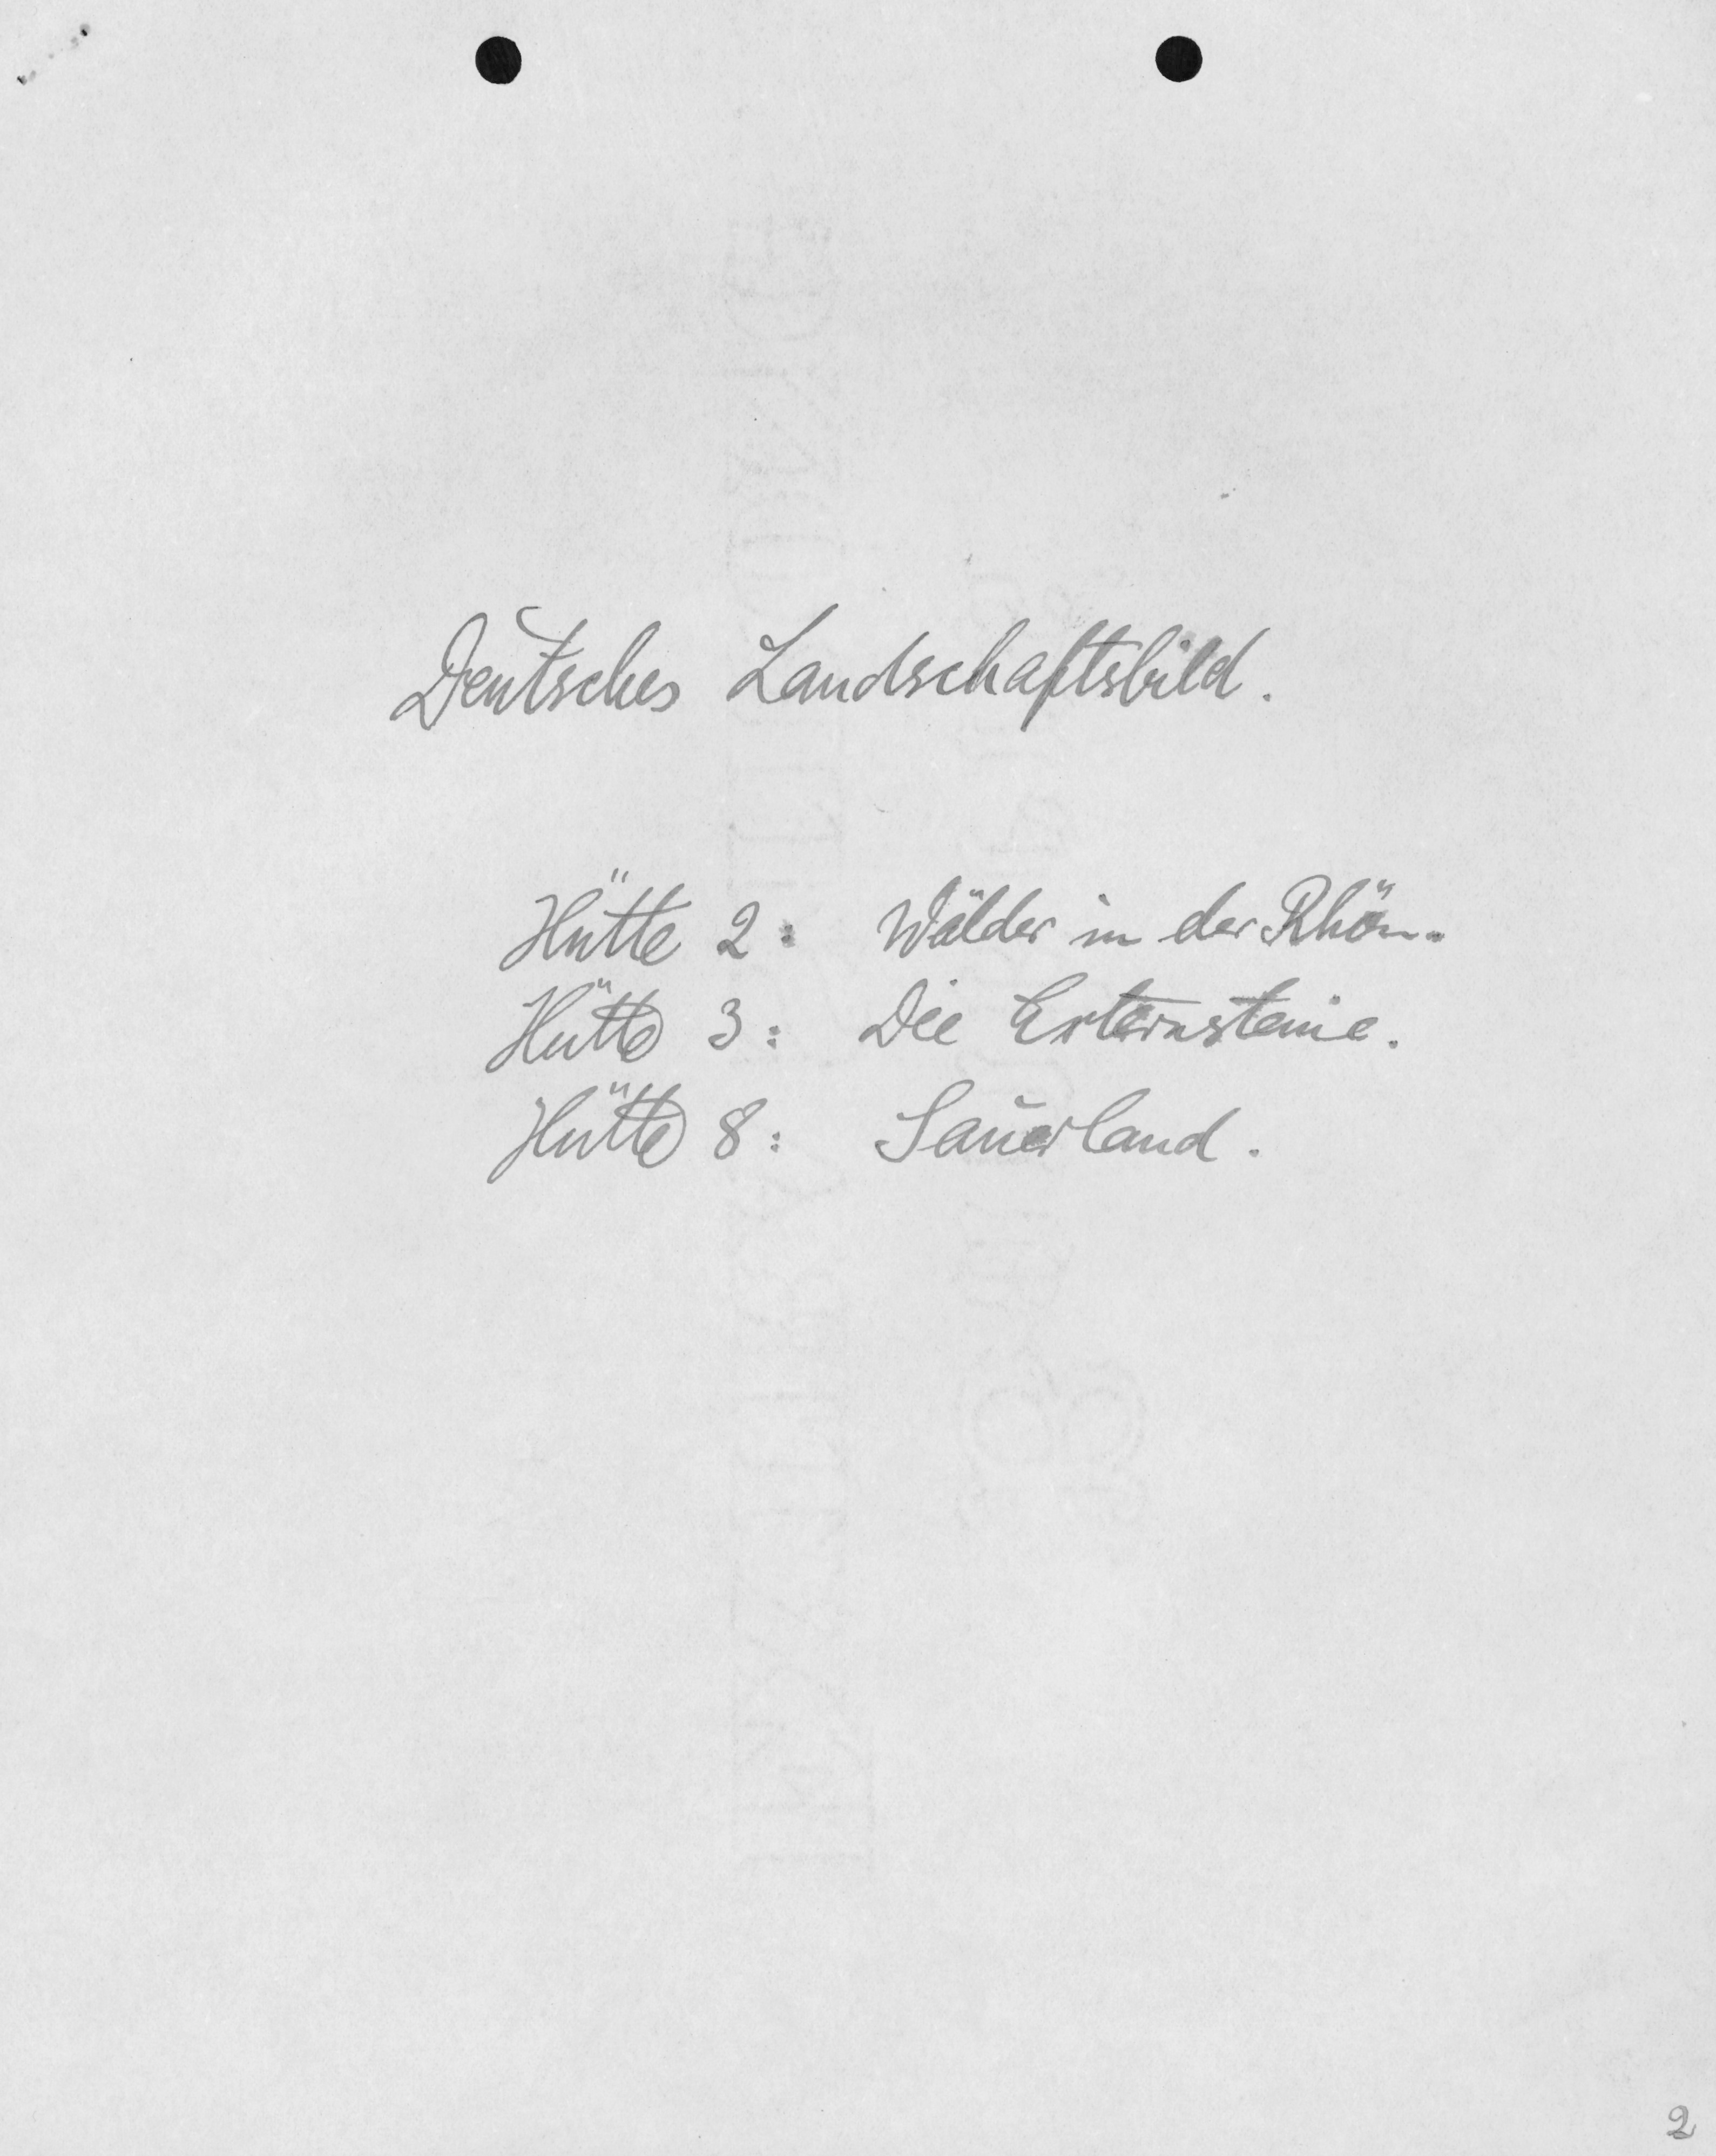 Deutsches Landschaftsbild.
Hütte 2: Wälder in der Rhön.
Hütte 3: Die Externsteine.
Hütte 8: Sauerland.
2